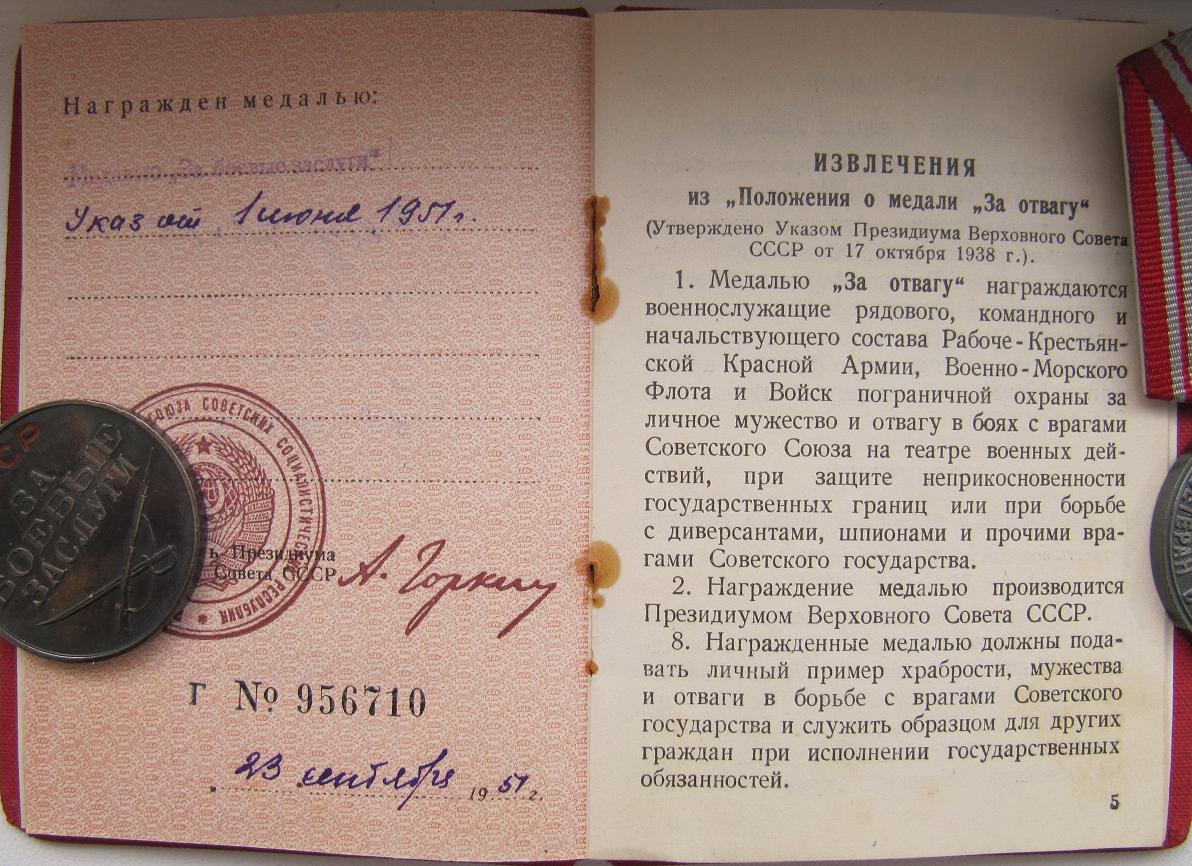 Награжден медалью:
Медалью „За боевые заслуги“
Указ от 1 июня 1951 г.
СОЮЗА СОВЕТСКИХ СОЦИАЛИСТИЧЕСКИХ РЕСПУБЛИК
СР
ЗА
БОЕВЫЕ
ЗАСЛУГИ
Президиума
Совета СССР
А. Горкин
Г № 956710
23 сентября 1951 г.
ИЗВЛЕЧЕНИЯ
из „Положения о медали „За отвагу“
(Утверждено Указом Президиума Верховного Совета
СССР от 17 октября 1938 г.).
1. Медалью „За отвагу“ награждаются
военнослужащие рядового, командного и
начальствующего состава Рабоче-Крестьян-
ской Красной Армии, Военно-Морского
Флота и Войск пограничной охраны за
личное мужество и отвагу в боях с врагами
Советского Союза на театре военных дей-
ствий, при защите неприкосновенности
государственных границ или при борьбе
с диверсантами, шпионами и прочими вра-
гами Советского государства.
2. Награждение медалью производится
Президиумом Верховного Совета СССР.
8. Награжденные медалью должны пода-
вать личный пример храбрости, мужества
и отваги в борьбе с врагами Советского
государства и служить образцом для других
граждан при исполнении государственных
обязанностей.
5